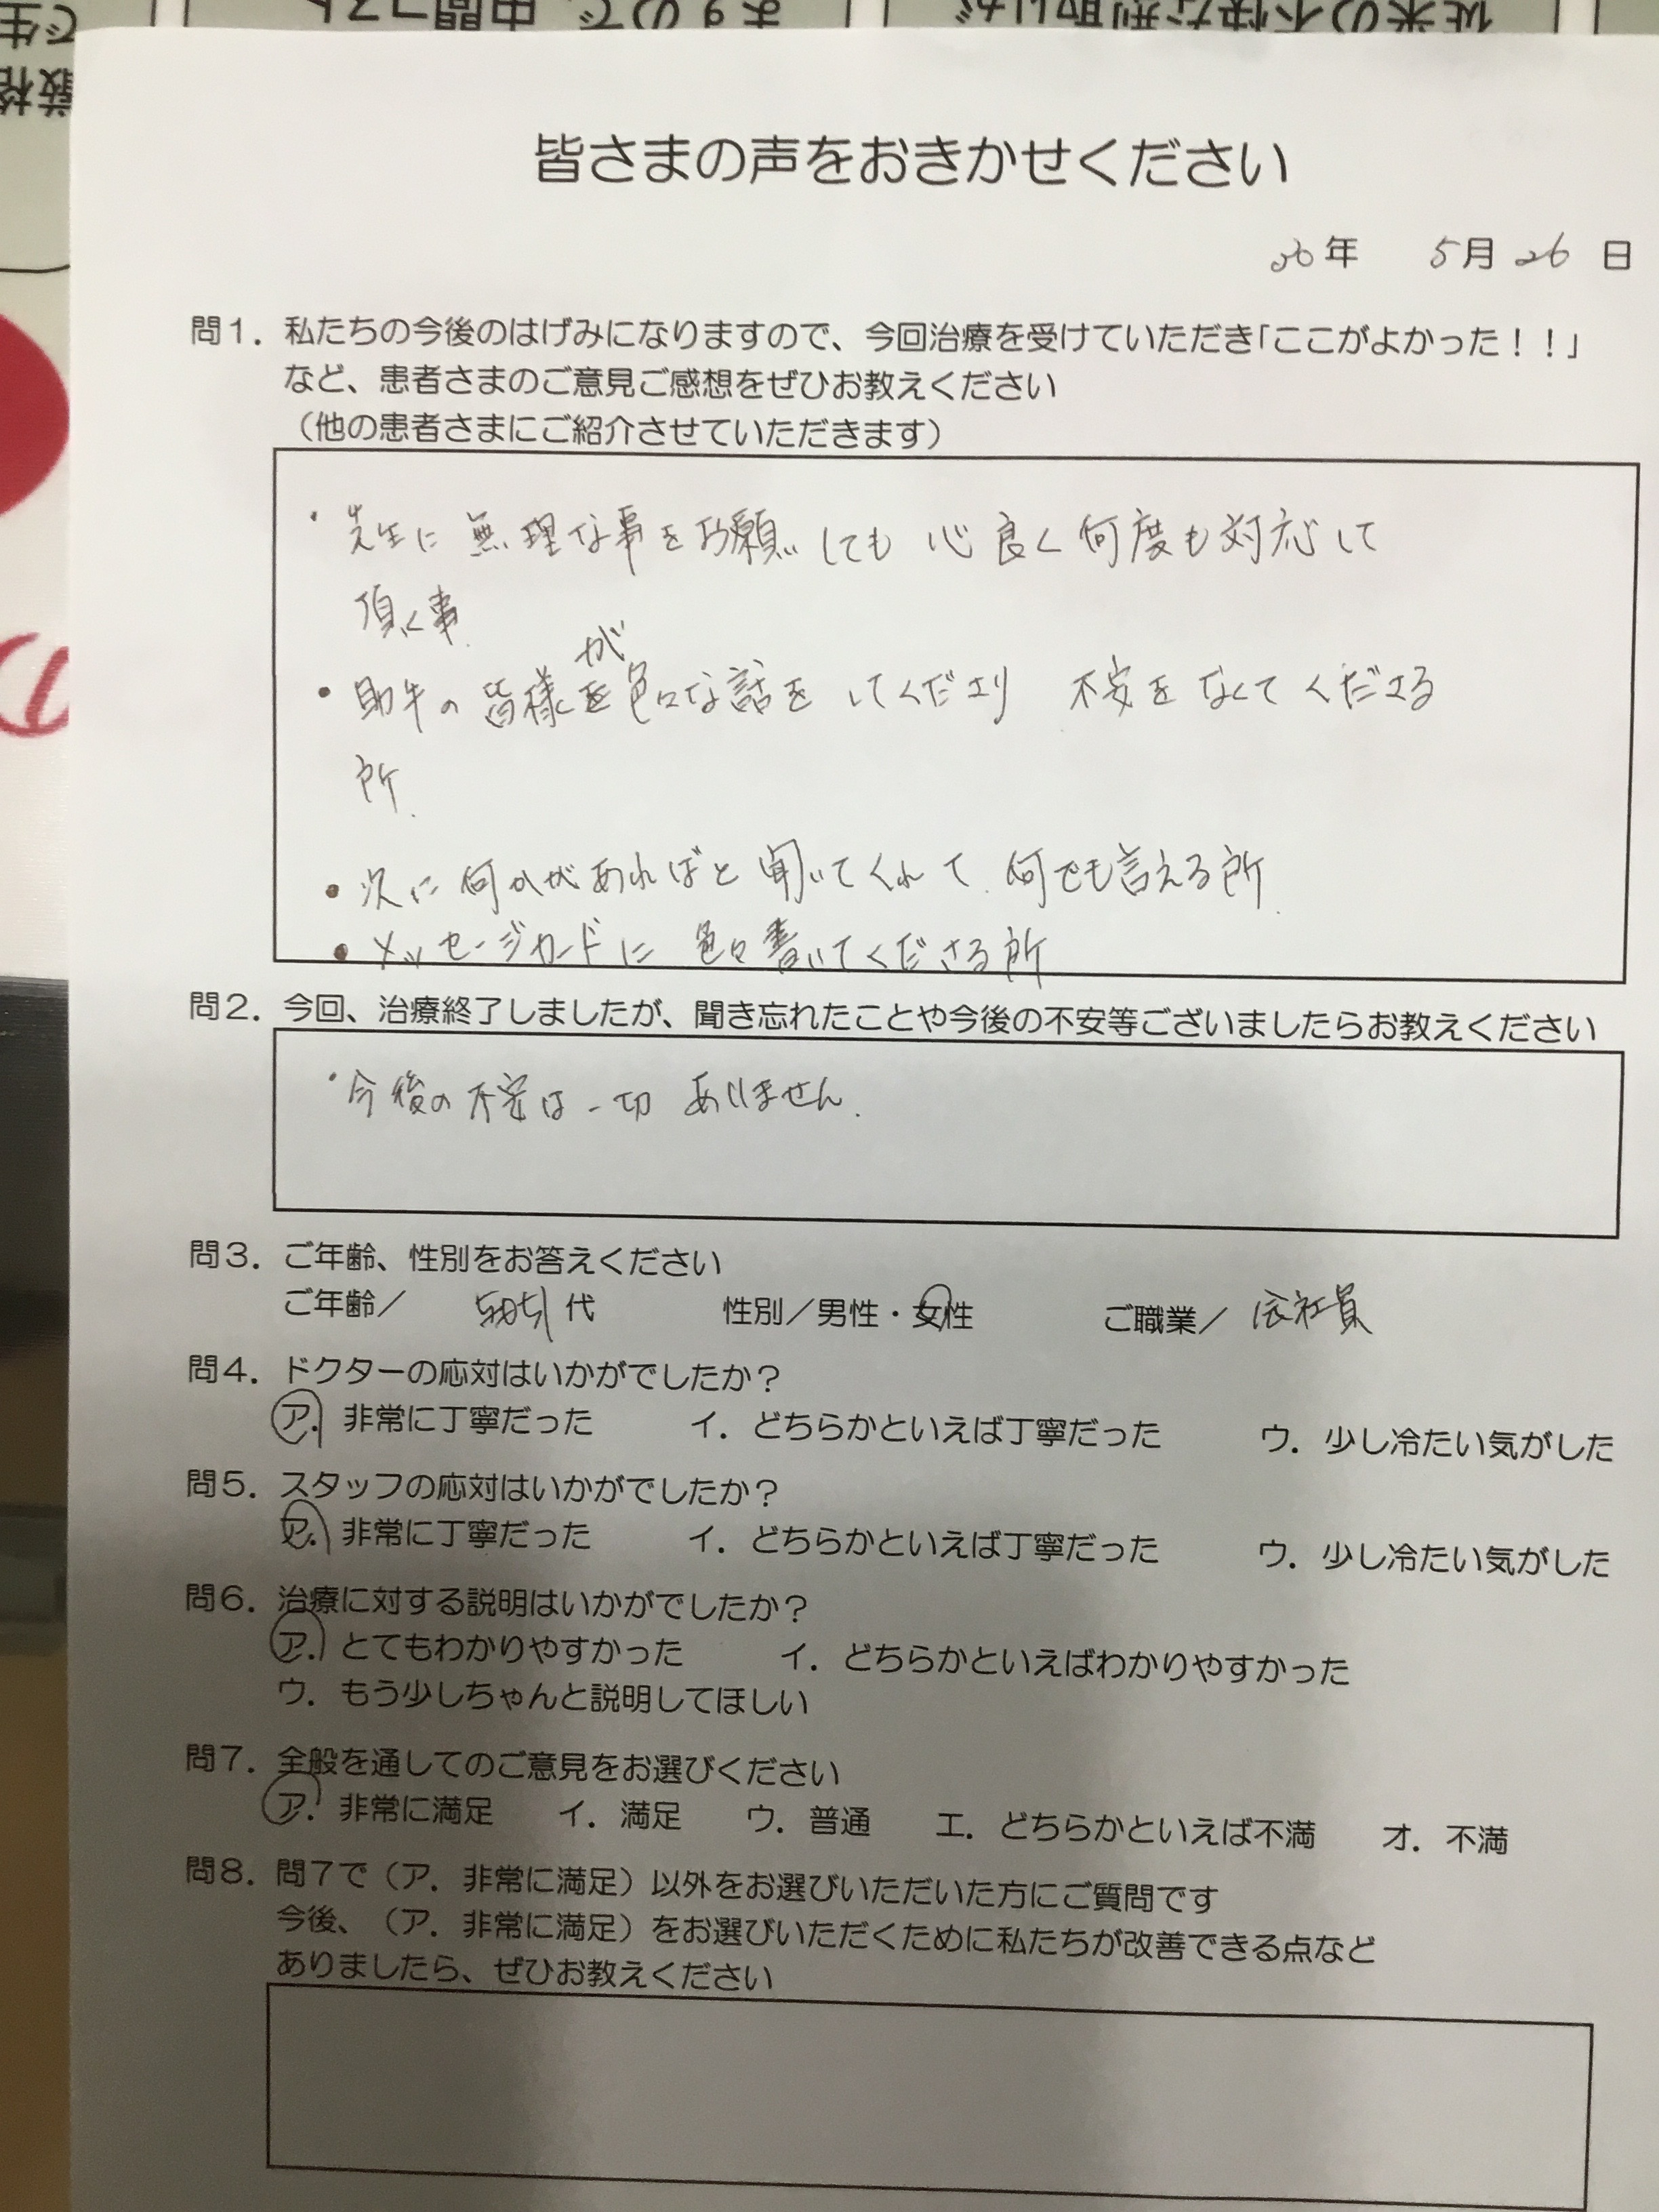 皆さまの声をおきかせください
30年 5月26日
問1. 私たちの今後のはげみになりますので、今回治療を受けていただき「ここがよかった!!」
など、患者さまのご意見ご感想をぜひお教えください
(他の患者さまにご紹介させていただきます)
・先生に無理な事をお願いしても心良く何度も対応して
頂く事.
・助手の皆様が色々な話をしてくださり 不安をなくてくださる
所.
・次に何かがあればと聞いてくれて、何でも言える所.
・メッセージカードに色々書いてくださる所
問2. 今回、治療終了しましたが、聞き忘れたことや今後の不安等ございましたらお教えください
・今後の不安は一切ありません.
問3. ご年齢、性別をお答えください
ご年齢/ 代 性別/男性・女性 ご職業/ 会社員
問4. ドクターの応対はいかがでしたか?
ア. 非常に丁寧だった イ. どちらかといえば丁寧だった ウ. 少し冷たい気がした
問5. スタッフの応対はいかがでしたか?
ア. 非常に丁寧だった イ. どちらかといえば丁寧だった ウ. 少し冷たい気がした
問6. 治療に対する説明はいかがでしたか?
ア. とてもわかりやすかった イ. どちらかといえばわかりやすかった
ウ. もう少しちゃんと説明してほしい
問7. 全般を通してのご意見をお選びください
ア. 非常に満足 イ. 満足 ウ. 普通 エ. どちらかといえば不満 オ. 不満
問8. 問7で(ア. 非常に満足)以外をお選びいただいた方にご質問です
今後、(ア. 非常に満足)をお選びいただくために私たちが改善できる点など
ありましたら、ぜひお教えください